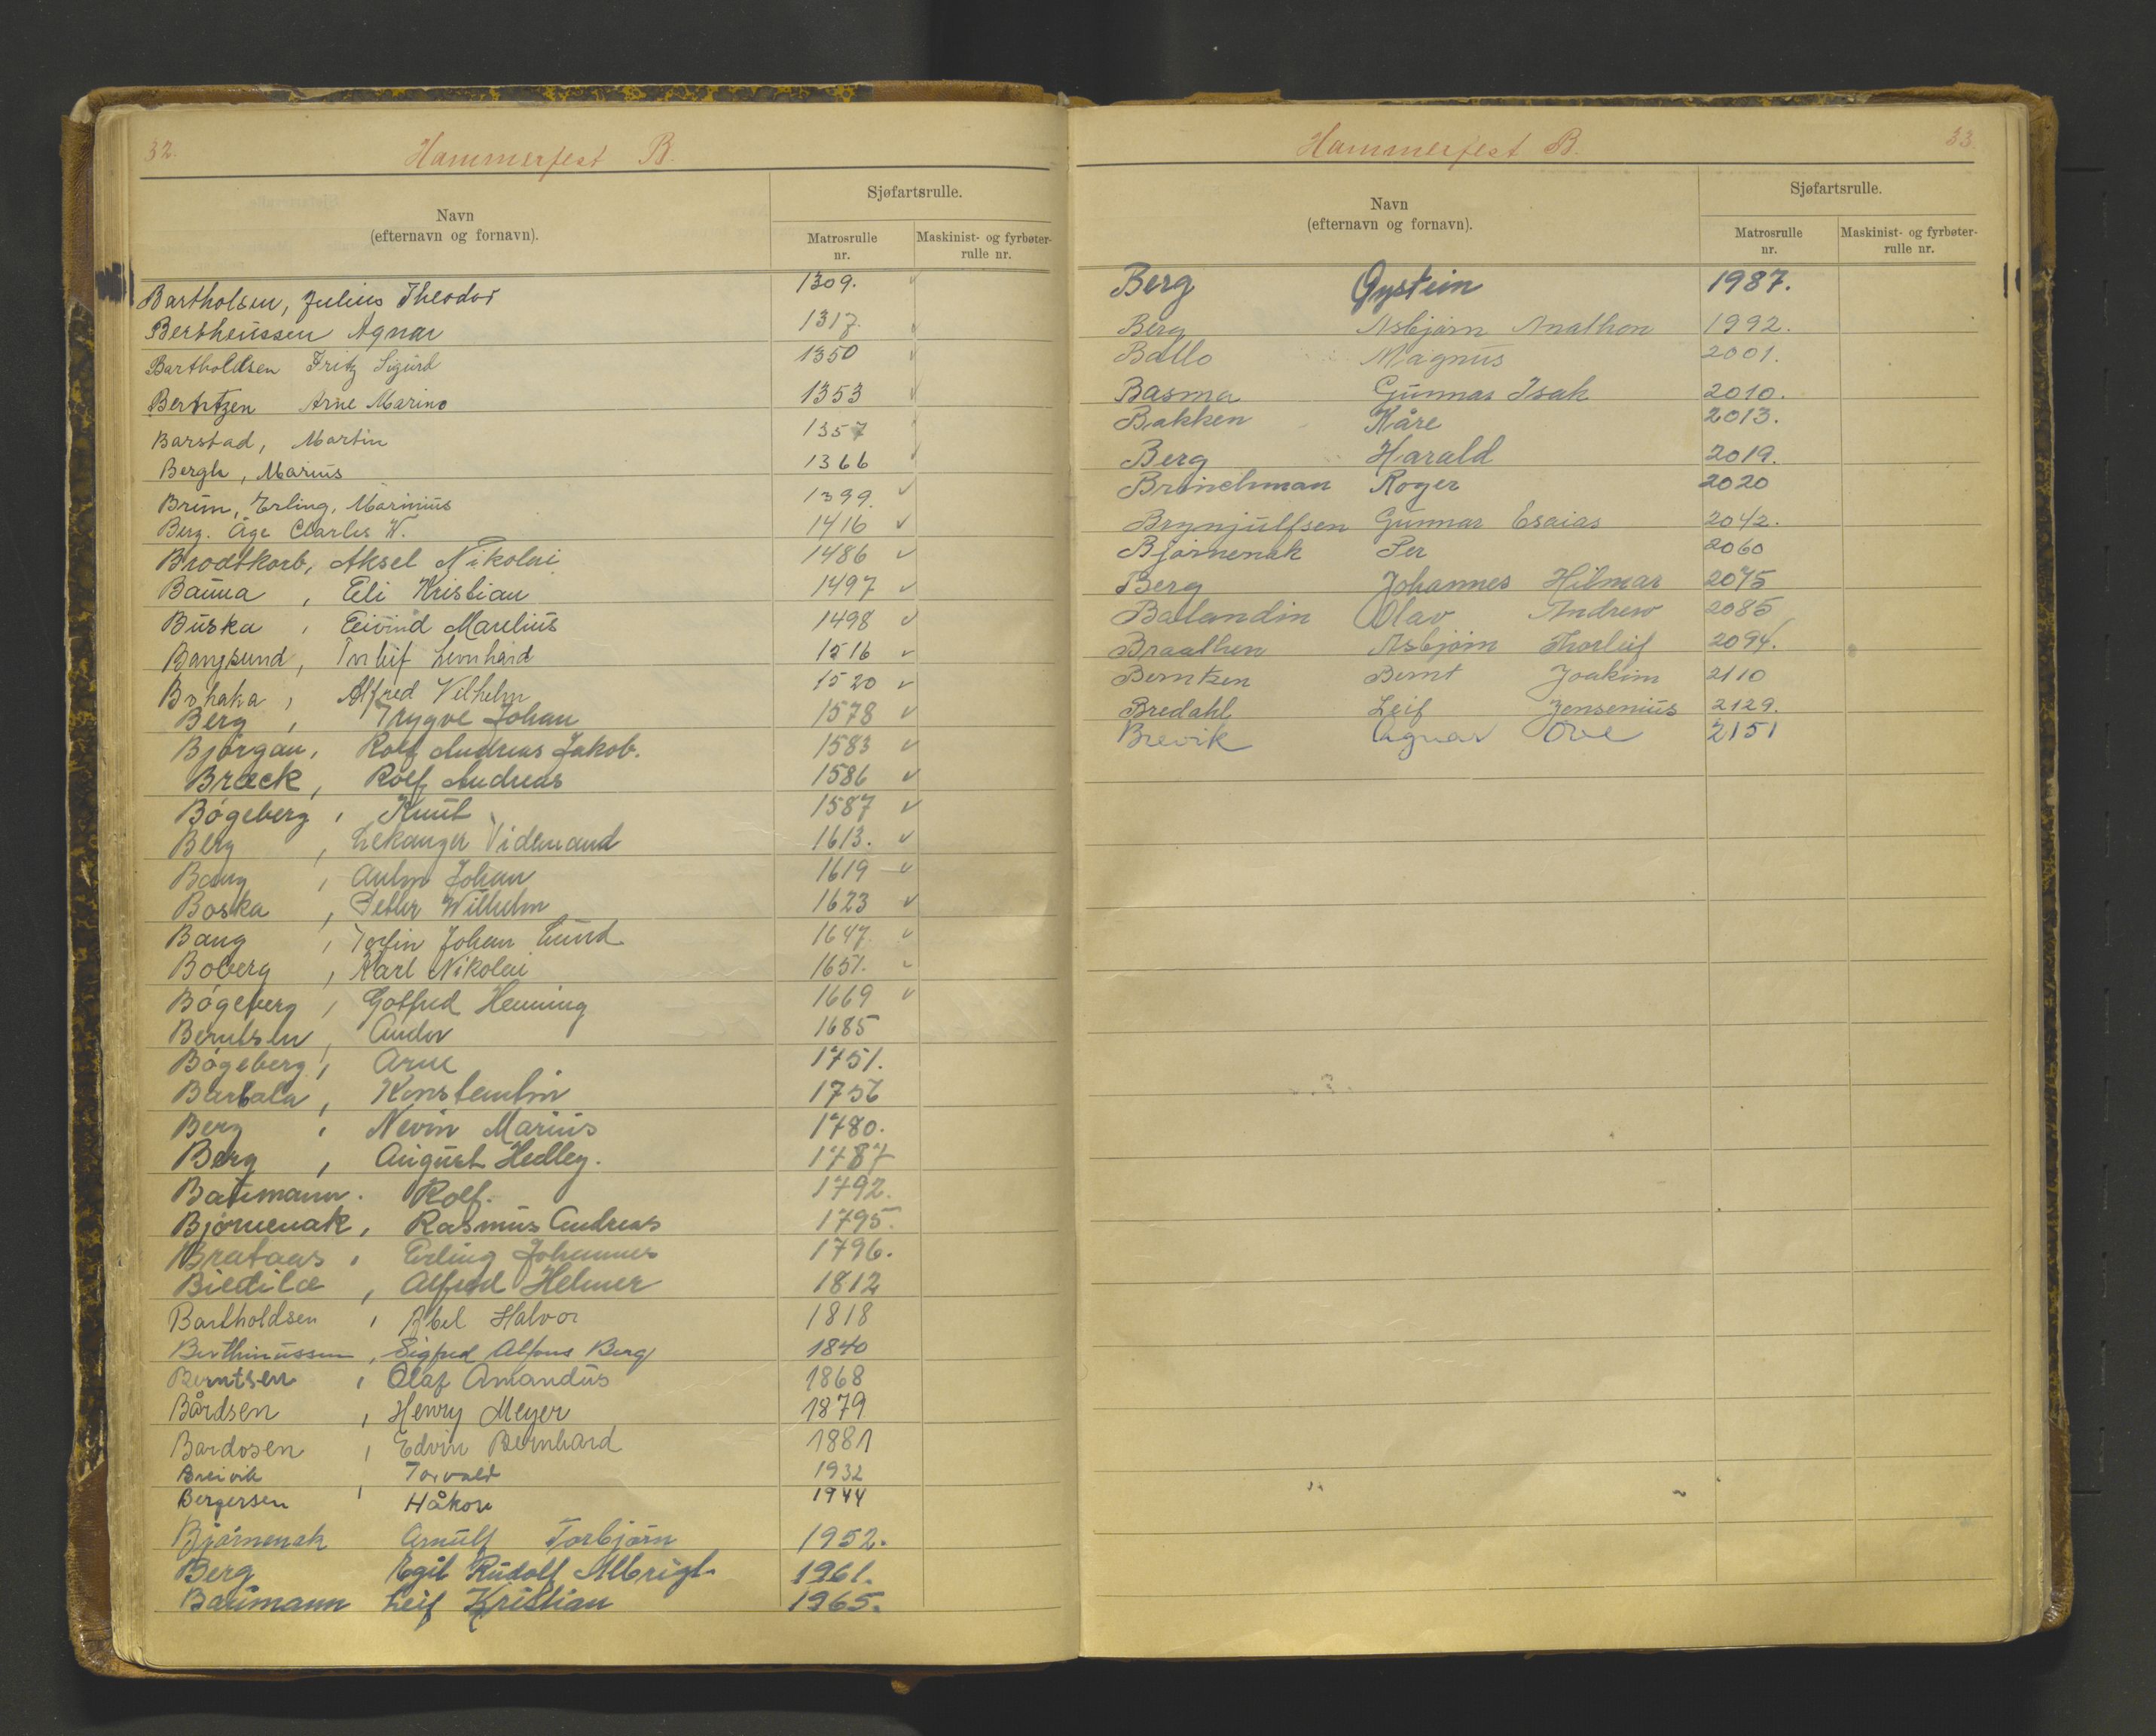 32.
Hammerfest B.
Navn
(efternavn og fornavn).
Sjøfartsrulle.
Matrosrulle
nr.
Maskinist- og fyrbøter-
rulle nr.
Bartholsen, Julius Theodor 1309. ✓
Bertheussen Agnar 1317. ✓
Bartholdsen Fritz Sigurd 1350 ✓
Berntzen Arne Marino 1353 ✓
Barstad, Martin 1357
Bergh, Marius 1366 ✓
Brun, Erling, Marinius 1399. ✓
Berg. Åge Charles W. 1416 ✓
Brodtkorb, Aksel Nikolai 1486 ✓
Bauna, Eli Kristian 1497 ✓
Buska, Eivind Marelius 1498 ✓
Bangsund, Torleif Leonhard 1516 ✓
Alfred Vilhelm 1520 ✓
Berg, Trygve Johan 1578 ✓
Bjørgan, Rolf Andreas Jakob. 1583 ✓
Bræck, Rolf Andreas 1586 ✓
Bøgeberg, Knut 1587 ✓
Berg, Videmand 1613. ✓
Bang, Anton Johan 1619 ✓
Boska, Petter Wilhelm 1623 ✓
Bang, Torfin Johan Lund 1647. ✓
Boberg, Karl Nikolai 1651. ✓
Bøgeberg, Gotfred Henning 1669 ✓
Berntsen, Andor 1685
Bøgeberg, Arne 1751.
Barbala, Konstantin 1756
Berg, Nevin Marius 1780.
Berg, August Hedley. 1787
Baumann. Rolf. 1792.
Bjørnenak, Rasmus Andreas 1795.
Brataas, Erling Johannes 1796.
Biedilæ, Alfred Helmer 1812
Bartholdsen, Abel Halvor 1818
Berthinussen, Sigfred Alfons Berg 1840
Berntsen, Olaf Amandus 1868
Bårdsen, Henry Meyer 1879
Bardosen, Edvin Bernhard 1881
Breivik, Torvald 1932
Bergersen Håkon 1944
Bjørnenak Arnulf Torbjørn 1952.
Berg Egil Rudolf Albrigt 1961.
Baumann Leif Kristian 1965.
33.
Hammerfest B.
Navn
(efternavn og fornavn).
Sjøfartsrulle.
Matrosrulle
nr.
Maskinist- og fyrbøter-
rulle nr.
Berg Øystein 1987.
Berg Asbjørn Anathon 1992.
Ballo Magnus 2001.
Basma Gunnar Isak 2010.
Bakken Kåre 2013.
Berg Harald 2019.
Brinchman Roger 2020
Brynjulfsen Gunnar Esaias 2042.
Bjørnenak Per 2060
Berg Johannes Hilmar 2075
Balandin Olav Andrew 2085
Braathen Asbjørn Thorleif 2094.
Berntzen Bernt Joakim 2110
Bredahl Leif Jensenius 2129.
Brevik Agnar Ove 2151